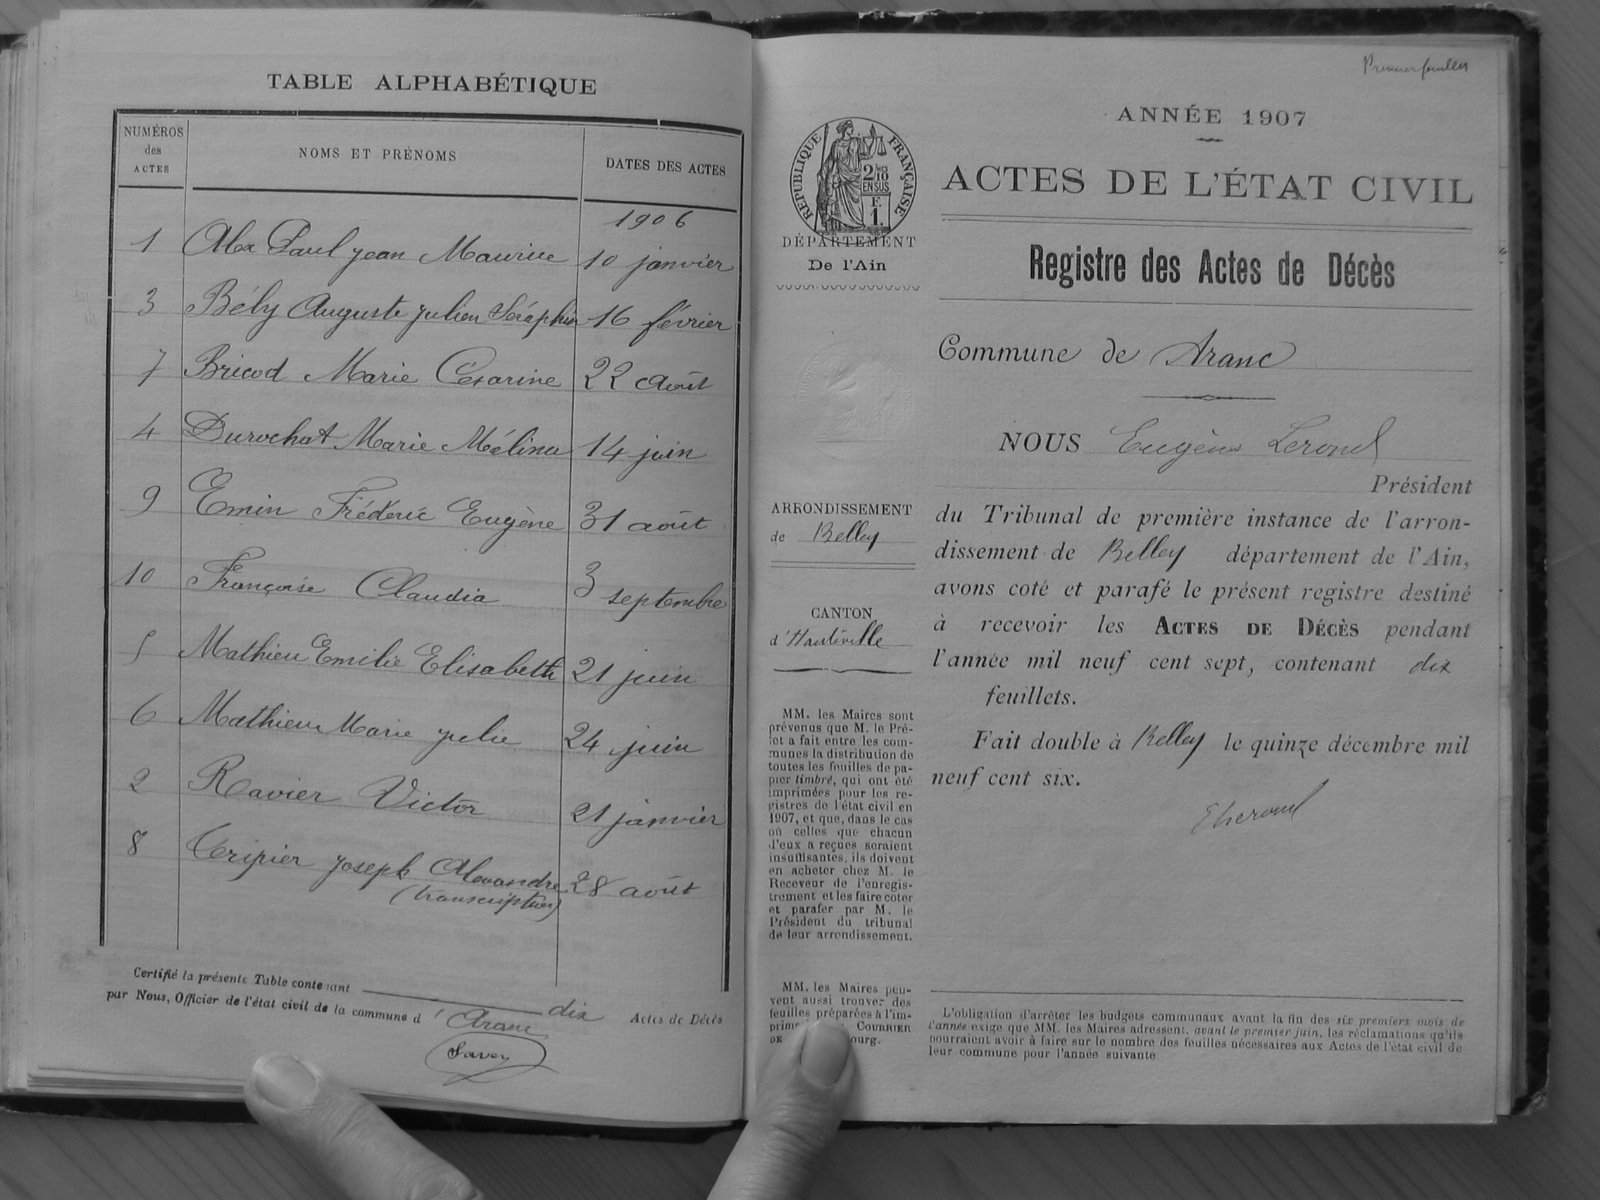 TABLE ALPHABÉTIQUE
NUMÉROS des ACTES
NOMS ET PRÉNOMS
DATES DES ACTES
1906
1 Alex Paul Jean Maurice 10 janvier
3 Bély Auguste Julien Séraphin 16 février
7 Bricod Marie Césarine 22 août
4 Durochat Marie Mélina 14 juin
9 Emin Fréderic Eugène 31 août
10 Françoise Claudia 3 septembre
5 Mathieu Emilie Elisabeth 21 juin
6 Mathieu Marie Julie 24 juin
2 Ravier Victor 21 janvier
8 Tripier Joseph Alexandre 28 août
(transcription)
Certifié la présente Table contenant dix Actes de Décès
par Nous, Officier de l'état civil de la commune d'Aranc
Savey
Premier feuillet
ANNÉE 1907
ACTES DE L'ÉTAT CIVIL
Registre des Actes de Décès
RÉPUBLIQUE FRANÇAISE
2/10 EN SUS
F. 1.
DÉPARTEMENT
De l'Ain
Commune de Aranc
NOUS Eugène Lerond
Président
du Tribunal de première instance de l'arron-
dissement de Belley département de l'Ain,
avons coté et parafé le présent registre destiné
à recevoir les ACTES DE DÉCÈS pendant
l'année mil neuf cent sept, contenant dix
feuillets.
Fait double à Belley le quinze décembre mil
neuf cent six.
E Lerond
ARRONDISSEMENT
de Belley
CANTON
d'Hauteville
MM. les Maires sont
prévenus que M. le Pré-
fet a fait entre les com-
munes la distribution de
toutes les feuilles de pa-
pier timbré, qui ont été
imprimées pour les re-
gistres de l'état civil en
1907, et que, dans le cas
où celles que chacun
d'eux a reçues seraient
insuffisantes, ils doivent
en acheter chez M. le
Receveur de l'enregis-
trement et les faire coter
et parafer par M. le
Président du tribunal
de leur arrondissement.
MM. les Maires peu-
vent aussi trouver des
feuilles préparées à l'im-
prime COURRIER
DE ourg.
L'obligation d'arrêter les budgets communaux avant la fin des six premiers mois de
l'année exige que MM. les Maires adressent, avant le premier juin, les réclamations qu'ils
pourraient avoir à faire sur le nombre des feuilles nécessaires aux Actes de l'état civil de
leur commune pour l'année suivante